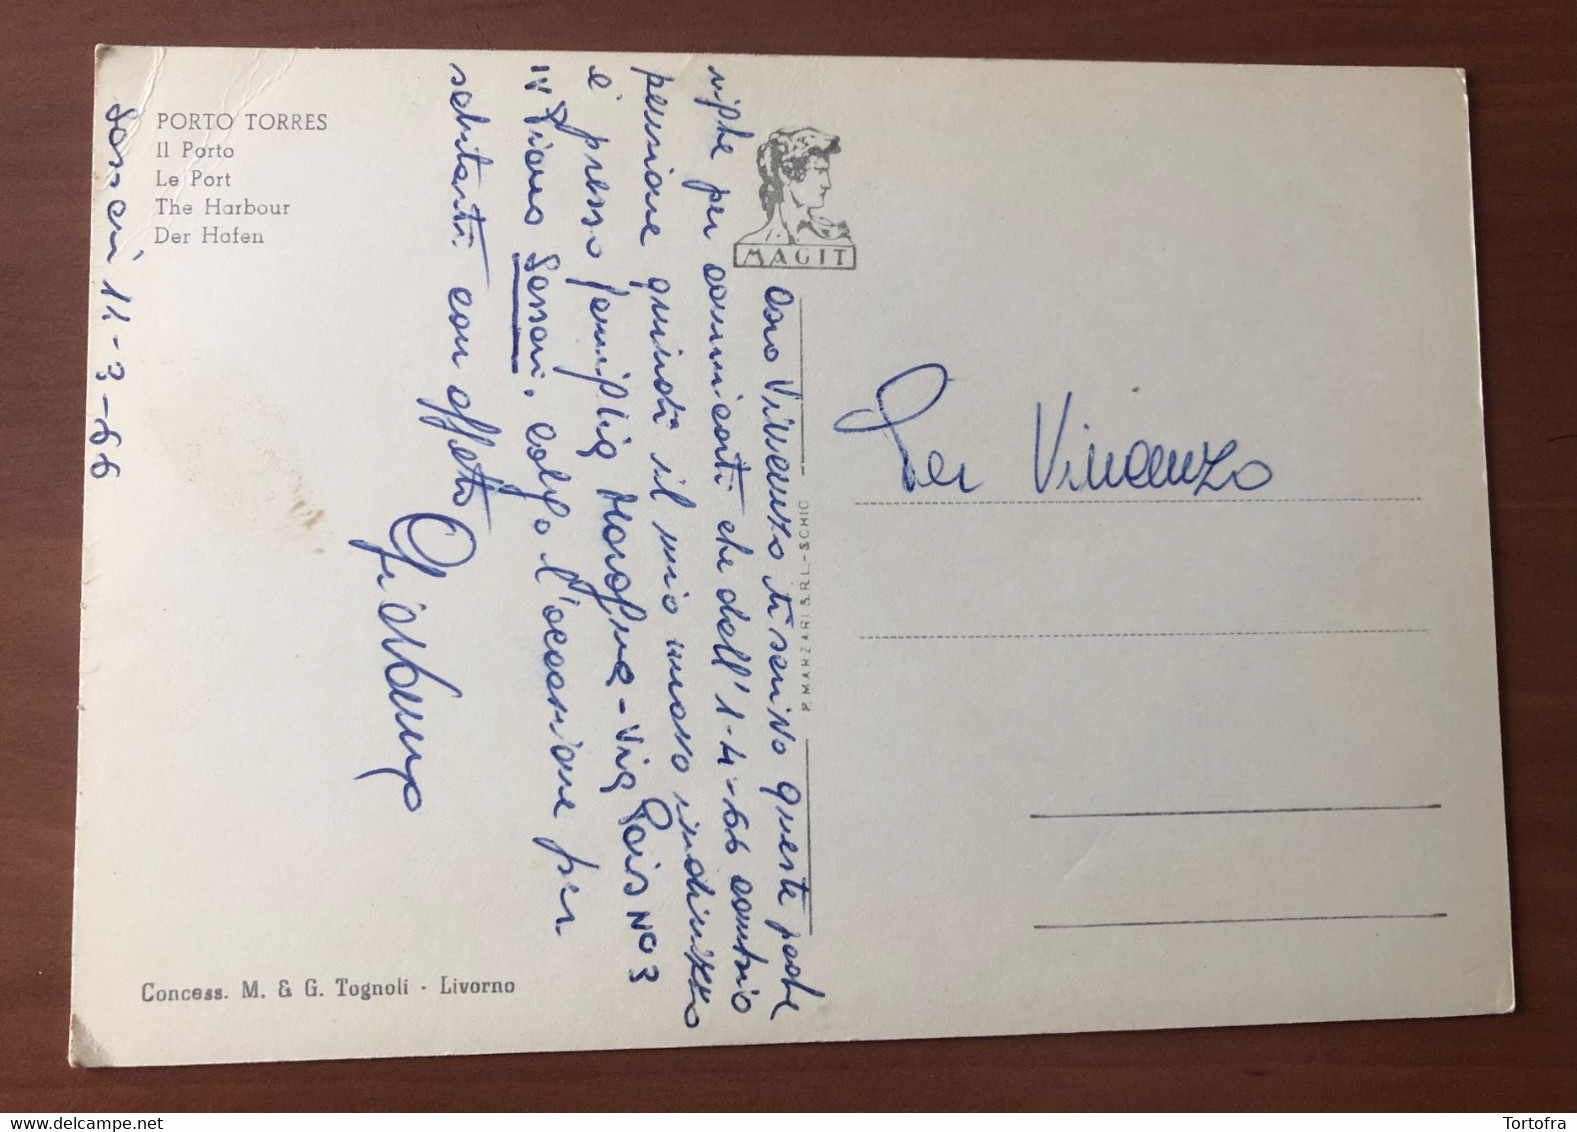 PORTO TORRES
Il Porto
Le Port
The Harbour
Der Hafen
MAGIT
Sassari 11-3-66
Caro Vincenzo ti scrivo queste poche
righe per comunicarti che dall'1-4-66 cambio
pensione quindi il mio nuovo indirizzo
è presso famiglia - Via Pais No 3
IV Piano Sassari, colgo l'occasione per
salutarti con affetto
Per Vincenzo
P. MARZARI S.R.L. - SCHIO
Concess. M. & G. Tognoli - Livorno
Tortofra